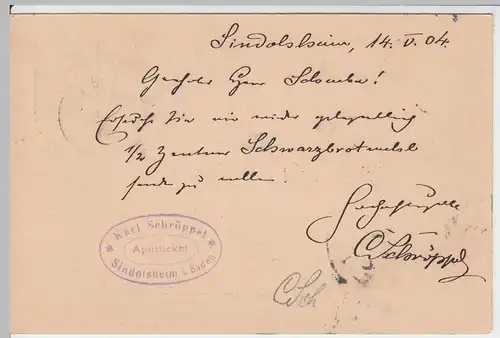 Sindolsheim, 14. V. 04.
Geehrter Herr Schember!
Ersuche Sie mir wieder gelegentlich
1/2 Zentner Schwarzbrotmehl
senden zu wollen.
Hochachtungsvoll
CSchröppel
Karl Schröppel
Apotheker
Sindolsheim i. Baden
CSch